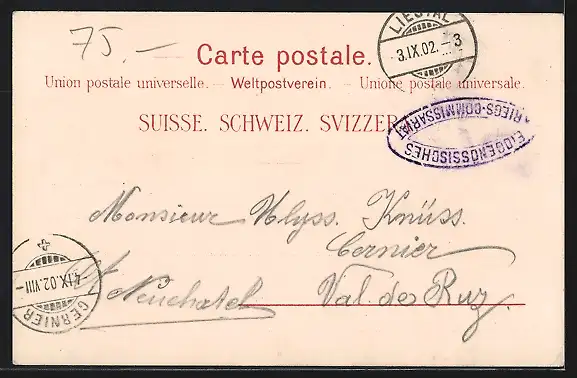 75.—
LIESTAL
3.IX.02.–3
Carte postale.
Union postale universelle. — Weltpostverein. — Unione postale universale.
SUISSE. SCHWEIZ. SVIZZERA
EIDGENÖSSISCHES
KRIEGS-COMMISSARIAT
Monsieur Ulyss. Knüss.
Cernier
Ct Neuchatel Val de Ruz.
4.IX.02.VIII–
CERNIER